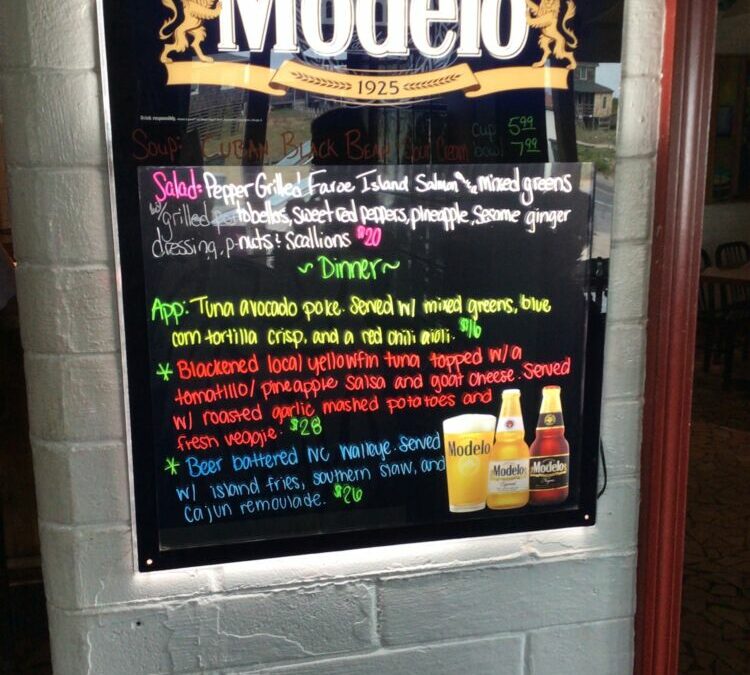 Modelo
1925
Drink responsibly.
Soup: Cuban Black Bean Sour Cream cup 5.99
bowl 7.99
Salad: Pepper Grilled Faroe Island Salmon mixed greens
w/ grilled tobellos, sweet red peppers, pineapple, sesame ginger
dressing, p-nuts & scallions $20
~ Dinner ~
App: Tuna avocado poke. Served w/ mixed greens, blue
corn tortilla crisp, and a red chili aioli. $16
* Blackened local yellowfin tuna topped w/ a
tomatillo/pineapple salsa and goat cheese. Served
w/ roasted garlic mashed potatoes and
fresh veggie. $28
* Beer battered NC Walleye. Served
w/ island fries, southern slaw, and
cajun remoulade. $26
Modelo
Modelo
Modelo